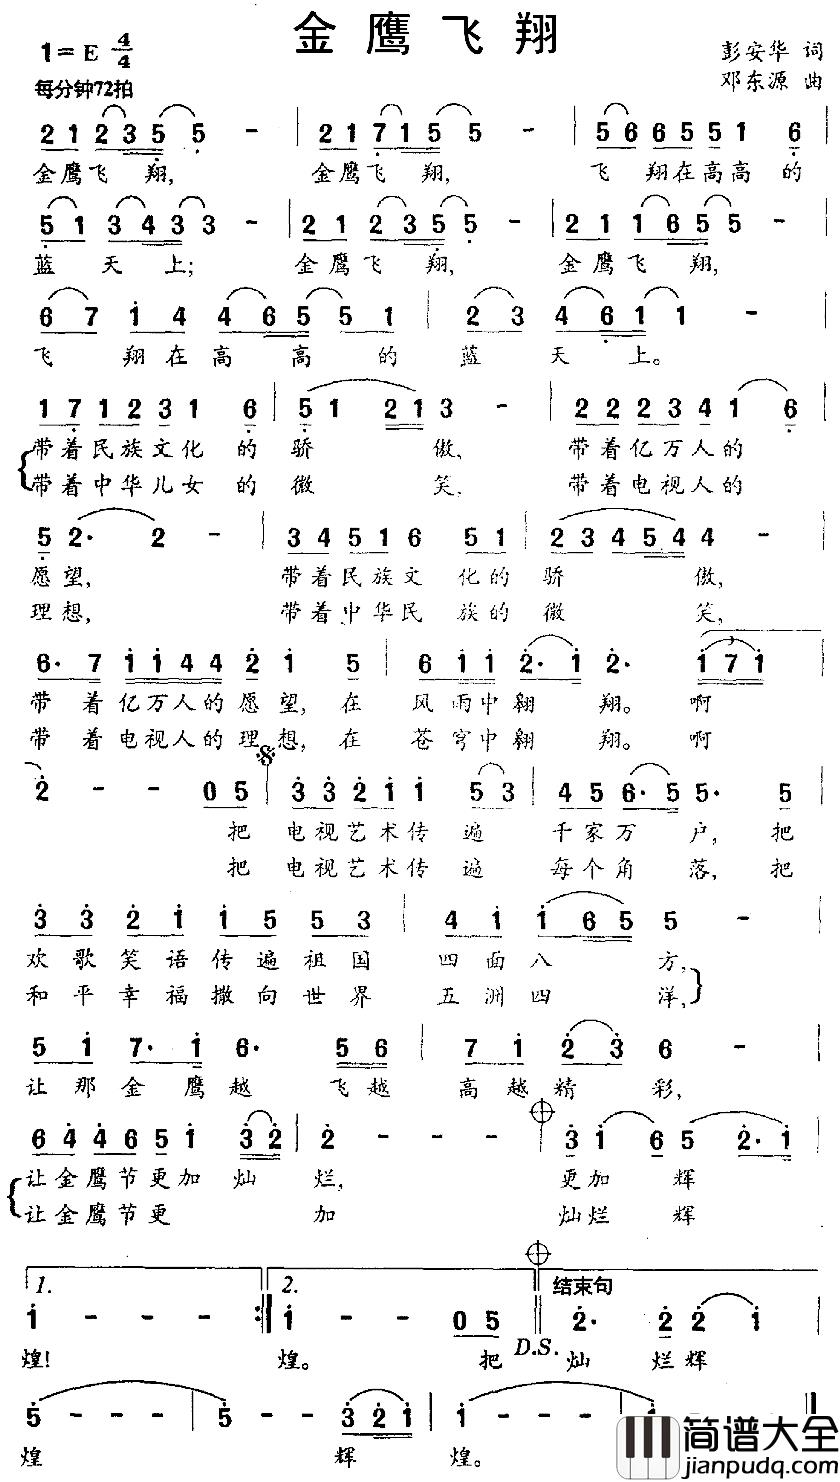 金鹰飞翔
1=E 4/4
彭安华 词
每分钟72拍
邓东源 曲
2 1 2 3 5 5 - | 2 1 7 1 5 5 - | 5 6 6 5 5 5 1 6
金鹰飞 翔, 金鹰飞 翔, 飞 翔在高高的
5 1 3 4 3 3 - | 2 1 2 3 5 5 - | 2 1 1 6 5 5 - |
蓝 天上; 金鹰飞 翔, 金鹰飞 翔,
6 7 1 4 4 6 5 5 1 | 2 3 4 6 1 1 - |
飞 翔在高 高 的 蓝 天 上。
1 7 1 2 3 1 6 | 5 1 2 1 3 - | 2 2 2 3 4 1 6
带着民族文化 的 骄 傲, 带着亿万人的
带着中华儿女 的 微 笑, 带着电视人的
5 2· 2 - | 3 4 5 1 6 5 1 | 2 3 4 5 4 4 - |
愿望, 带着民族文 化的 骄 傲,
理想, 带着中华民 族的 微 笑,
6· 7 1 1 4 4 2 1 5 | 6 1 1 2· 1 2· 1 7 1
3
带 着 亿万人的愿望,在 风 雨中翱 翔。 啊
带 着 电视人的理想,在 苍 穹中翱 翔。 啊
2 - - 0 5 | 3 3 2 1 1 5 3 | 4 5 6· 5 5· 5
把 电视艺术传 遍 千家万 户, 把
把 电视艺术传 遍 每个角 落, 把
3 3 2 1 1 5 5 3 | 4 1 1 6 5 5 - |
欢 歌 笑 语 传 遍 祖 国 四 面 八 方,
和 平 幸 福 撒 向 世 界 五 洲 四 洋,
5 1 7· 1 6· 5 6 | 7 1 2 3 6 - |
让 那 金 鹰 越 飞越 高越精 彩,
6 4 4 6 5 1 3 2 | 2 - - | 3 1 6 5 2· 1 |
让金鹰节更加 灿 烂, 更加 辉
让金鹰节更 加 灿烂 辉
1. 2. 结束句
1 - - - :| 1 - - 0 5 2· 2 2 1 |
D.S.
煌! 煌。 把 灿 烂辉
5 - - - | 5 - - 3 2 1 | 1 - - - | 1 - - -
煌 辉 煌。
简谱大全
jianpudq.com